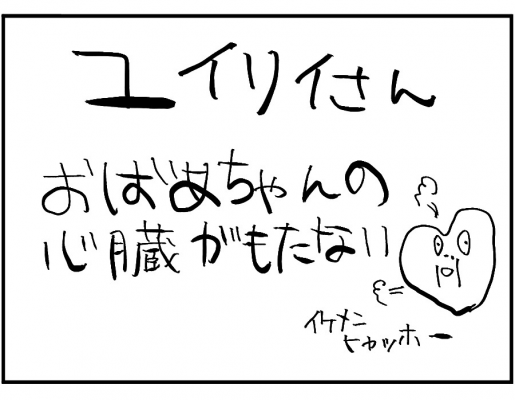 ユイリイさん
おばあちゃんの
心臓がもたない
イケメン
ヒャッホー